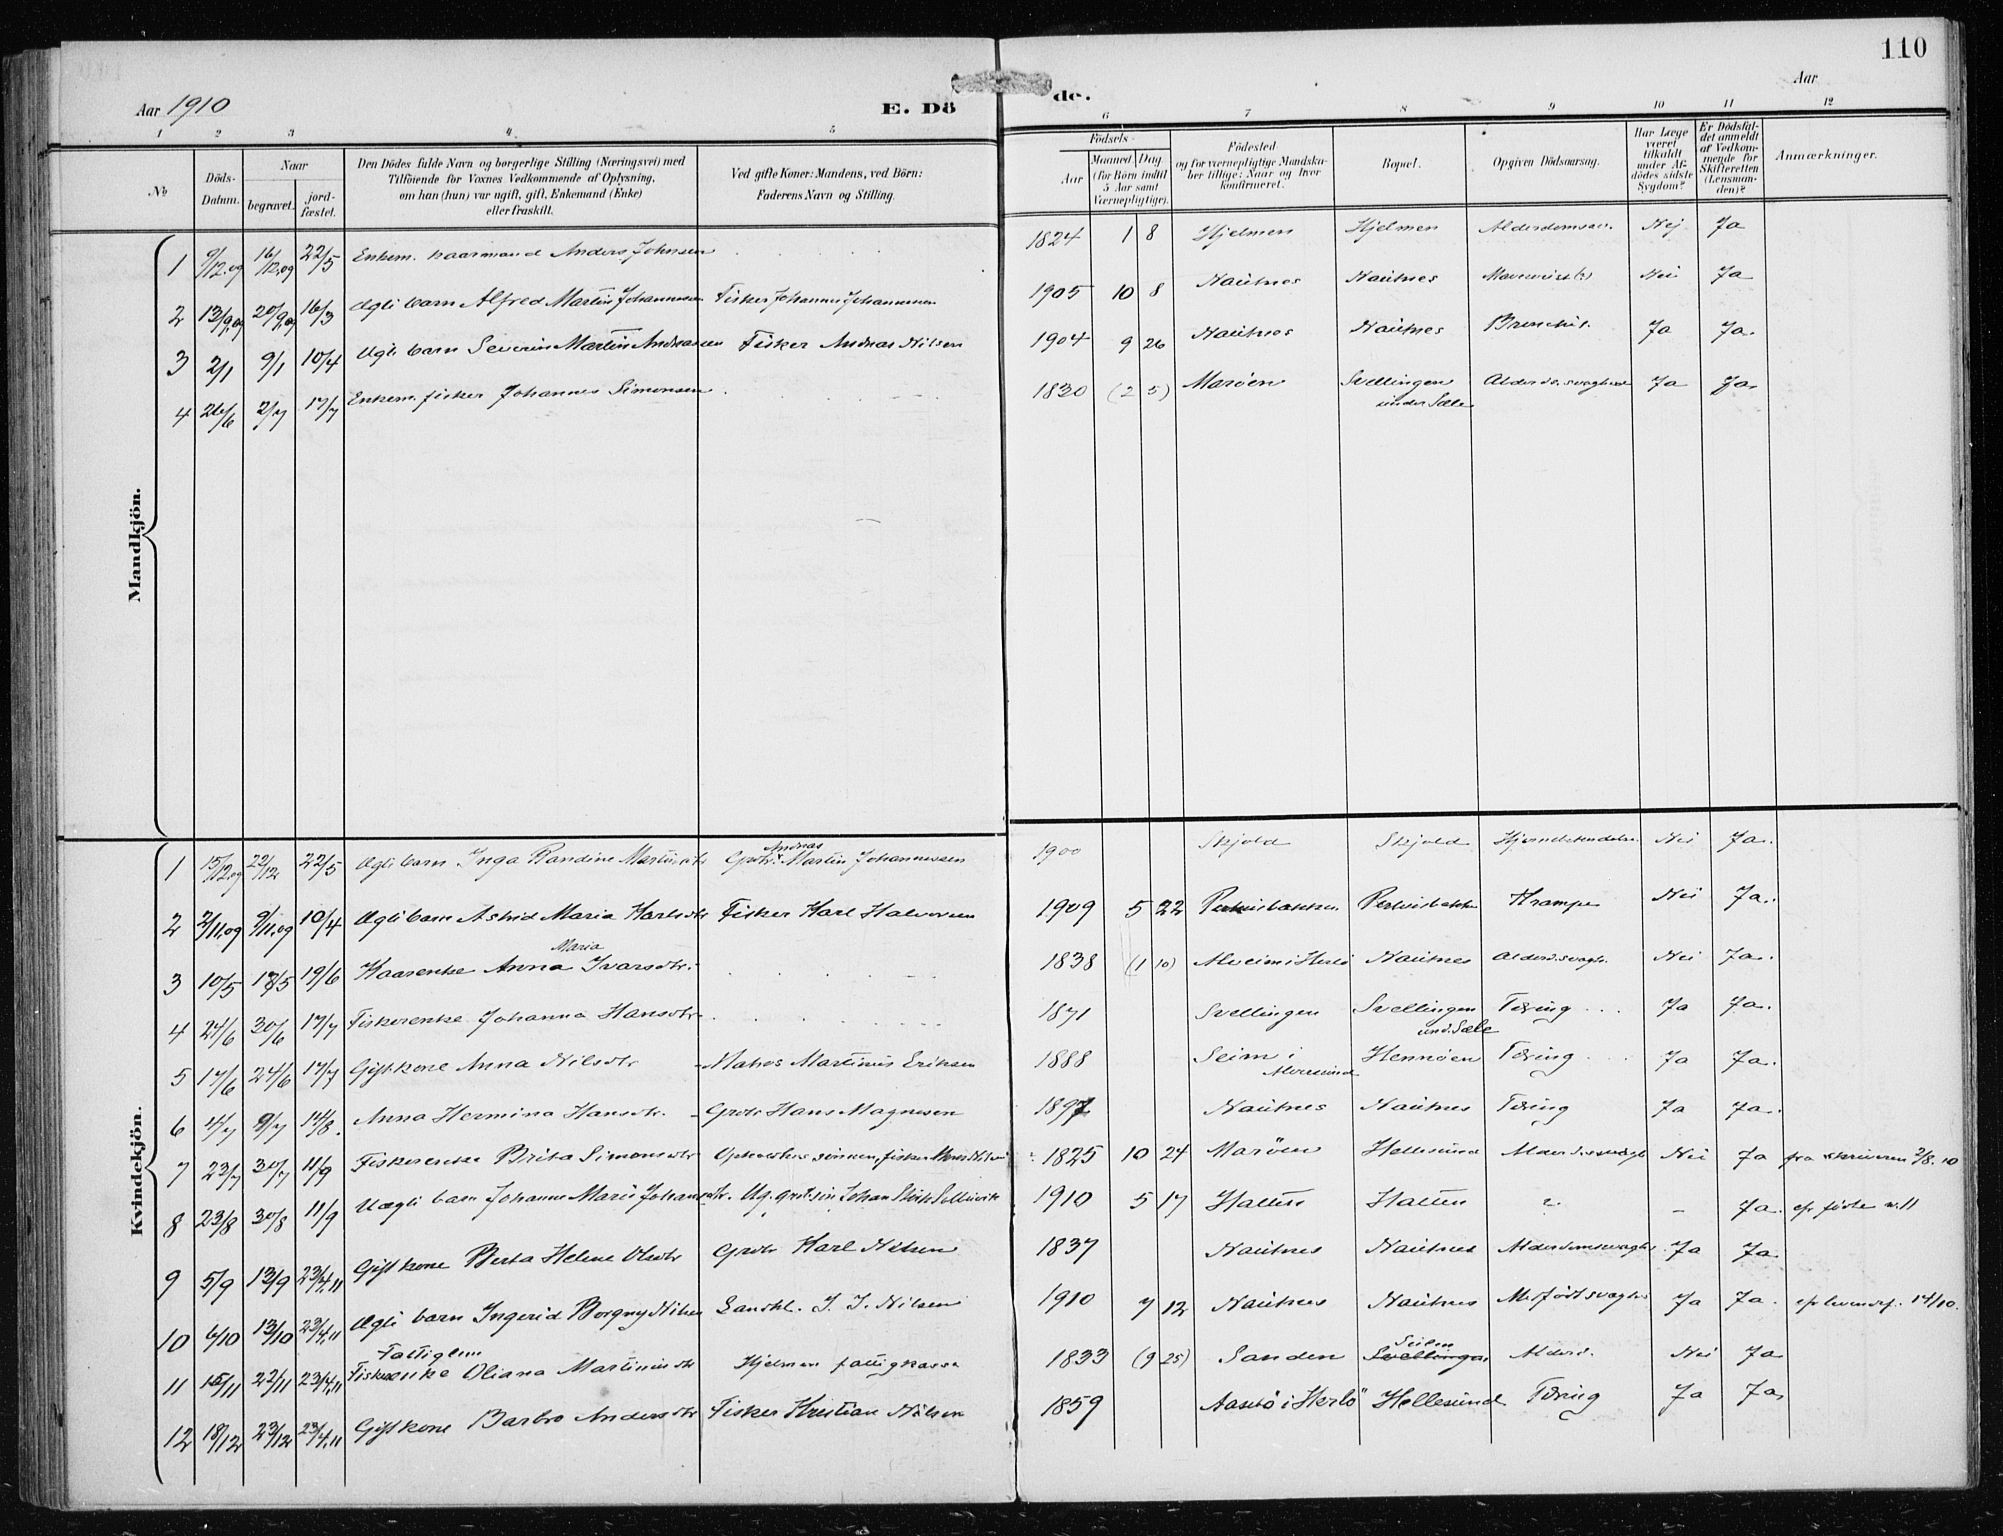 110
Aar 1910 E. Dö de. Aar
1 2 3 4 5 6 7 8 9 10 11 12
№ Döds-Datum. Naar begravet. jord-fæstet. Den Dödes fulde Navn og borgerlige Stilling (Næringsvei) med Tilföiende for Voxnes Vedkommende af Oplysning, om han (hun) var ugift, gift, Enkemand (Enke) eller fraskilt. Ved gifte Koner: Mandens, ved Börn: Faderens Navn og Stilling. Födsels- Aar Maaned Dag (for Börn indtil 5 Aar samt Værnepligtige). Födested og for værnepligtige Mandska-ber tillige: Naar og hvor konfirmeret. Bopæl. Opgiven Dödsaarsag. Har Læge været tilkaldt under Af-dödes sidste Sygdom? Er Dödsfal-det anmeldt af Vedkom-mende for Skifteretten (Lensman-den)? Anmærkninger.
Mandkjön.
1 9/12.09 16/12.09 22/5 Enkem. kaarmand Anders Johnsen 1824 1 8 Hjelmen Hjelmen Nej Ja
2 13/9.09 20/9.09 16/3 Ægte barn Alfred Martin Johannessen Fisker Johannes Johannessen 1905 10 8 Nautnes Nautnes Nei Ja
3 2/1 9/1 10/4 Ægte barn Severin Martin Andreassen Fisker Andreas Nilsen 1904 9 26 Nautnes Nautnes Bronchit. Ja Ja.
4 26/6 2/7 17/7 Enkem. fisker Johannes Simonsen 1830 (2 5) Marøen Svellingen under Sæle Alderd.svaghed Ja Ja.
Kvindekjön.
1 15/12.09 22/12 22/5 Ægte barn Inga Randine Martinsdtr Grdbr. Andreas Martin Johannessen 1900 Skjold Skjold Hjernebetendelse Nei Ja.
2 2/11.09 9/11.09 10/4 Ægte barn Astrid Maria Karlsdtr Fisker Karl Halvorsen 1909 5 22 Krampe Nei Ja.
3 10/5 17/5 19/6 Kaarenke Anna Maria Ivarsdtr. 1838 (1 10) Alveim i Herlø Nautnes Alderd.svagh. Nei Ja.
4 24/6 30/6 17/7 Fiskerenke Johanna Hansdtr. 1871 Svellingen Svellingen und. Sæle Tæring Ja Ja.
5 17/6 24/6 17/7 Gift kone Anna Nilsdtr Matros Martinus Eriksen 1888 Seim i Alversund Hennøen Tæring Ja Ja.
6 4/7 9/7 14/8. Anna Hermina Hansdtr. Grdbr Hans Magnesen 1897 Nautnes Nautnes Tæring Ja Ja.
7 23/7 30/7 11/9 Fiskerenke Brita Simonsdtr Opholdt hos sønnen, fisker Mons Nilsen 1825 10 24 Marøen Hellesund Alderd.svagh. Nei Ja fra skriveren 2/8.10
8 23/8 30/8 11/9 Uægte barn Johanne Marie Johansdtr. Ug. grdbr.søn Johan 1910 5 17 Hatten Hatten ? – Ja. cfr fødte n. 11
9 5/9 13/9 23/4.11 Gift kone Berta Helene Olsdtr Grdbr Karl Nilsen 1837 Nautnes Nautnes Alderdomssvaghed Ja Ja.
10 6/10 13/10 23/4.11 Ægte barn Ingerid Borgny Nilsen Landhl. J. J. Nilsen 1910 7 12 Nautnes Nautnes Medfødt svaghed Ja Ja. 14/10.
11 15/11 22/11 23/4.11 Fattiglem Fiskerenke Oliana Martinusdtr Hjelmen fattigkasse 1833 (9 25) Sanden Seilen Svellingen Alderd. Nei Ja
12 18/12 23/12 23/4.11 Gift kone Barbro Andersdtr Fisker Kristian Nilsen 1859 Aasebø i Herlø Hellesund Tæring Ja Ja.